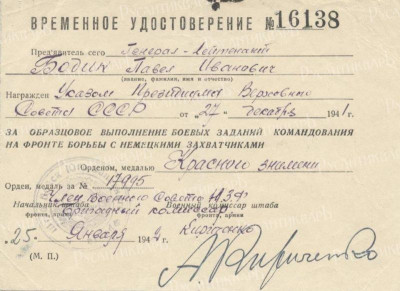 ВРЕМЕННОЕ УДОСТОВЕРЕНИЕ № 16138
Пред'явитель сего Генерал-Лейтенант
Бодин Павел Иванович
(звание, фамилия, имя и отчество)
Награжден Указом Президиума Верховного
Совета СССР от 27 декабря 1941 г.
ЗА ОБРАЗЦОВОЕ ВЫПОЛНЕНИЕ БОЕВЫХ ЗАДАНИЙ КОМАНДОВАНИЯ
НА ФРОНТЕ БОРЬБЫ С НЕМЕЦКИМИ ЗАХВАТЧИКАМИ
Орденом, медалью Красного знамени
Орден, медаль за № 17995
Член Военного Совета Ю.З.Ф.
Начальник штаба Военный комиссар штаба
фронта, армии фронта, армии
бригадный комиссар Кириченко
25 Января 1942 г.
(М. П.) А. Кириченко